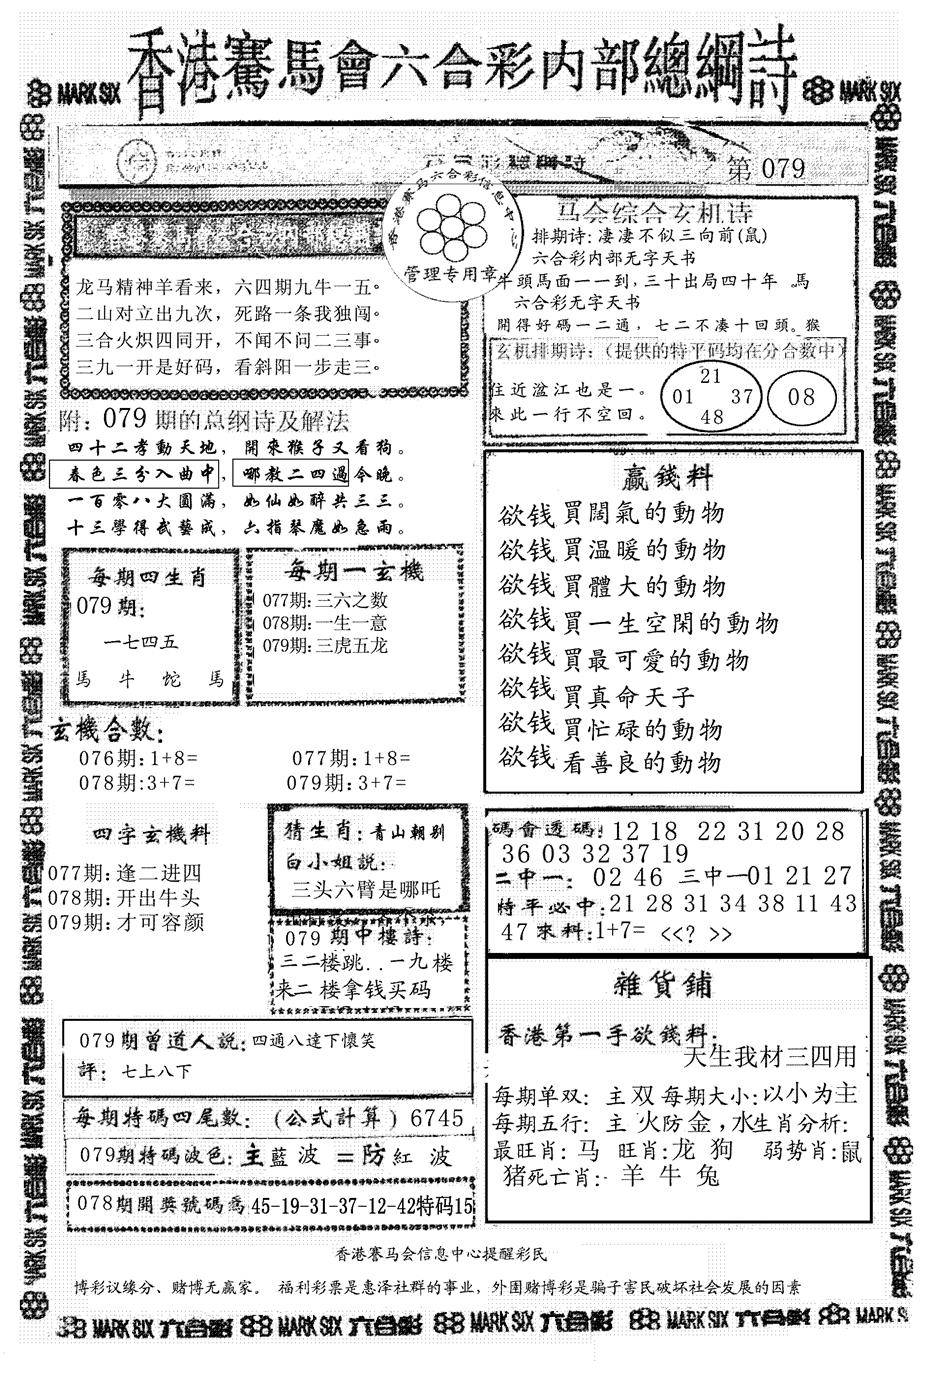 香港賽馬會六合彩内部總綱詩
MARK SIX
MARK SIX
第 079
香港赛马六合彩信息中心
管理专用章
龙马精神羊看来，六四期九牛一五。
二山对立出九次，死路一条我独闯。
三合火炽四同开，不闻不问二三事。
三九一开是好码，看斜阳一步走三。
马会综合玄机诗
排期诗：凄凄不似三向前(鼠)
六合彩内部无字天书
牛頭馬面一一到，三十出局四十年 。馬
六合彩无字天书
開得好碼一二通，七二不凑十回頭。猴
玄机排期诗：（提供的特平码均在分合数中）
住近湓江也是一。
來此一行不空回。
21
01 37
48
08
附：079期的总纲诗及解法
四十二孝動天地，開來猴子又看狗。
春色三分入曲中，哪教二四過今晚。
一百零八大圆滿，如仙如醉共三三。
十三學得武藝成，六指琴魔如急雨。
每期四生肖
079期：
一七四五
馬 牛 蛇 馬
每期一玄機
077期:三六之数
078期:一生一意
079期:三虎五龙
赢錢料
欲钱買闊氣的動物
欲钱買温暖的動物
欲钱買體大的動物
欲钱買一生空閑的動物
欲钱買最可愛的動物
欲钱買真命天子
欲钱買忙碌的動物
欲钱看善良的動物
玄機合數：
076期:1+8= 077期:1+8=
078期:3+7= 079期:3+7=
四字玄機料
077期:逢二进四
078期:开出牛头
079期:才可容颜
猜生肖：青山朝别
白小姐説：
三头六臂是哪吒
079期中樓詩：
三二楼跳..一九楼
来二楼拿钱买码
碼會透碼：12 18 22 31 20 28
36 03 32 37 19
二中一：02 46 三中一01 21 27
特平必中：21 28 31 34 38 11 43
47 來料：1+7= <<? >>
雜貨鋪
香港第一手欲錢料：
天生我材三四用
每期单双：主双 每期大小：以小为主
每期五行：主 火防金，水生肖分析：
最旺肖：马 旺肖：龙 狗 弱势肖：鼠
猪死亡肖： 羊 牛 兔
079期曾道人説：四通八達下懷笑
評：七上八下
每期特碼四尾數：（公式計算）6745
079期特碼波色：主藍波 =防紅 波
078期開獎號碼爲45-19-31-37-12-42特码15
香港赛马会信息中心提醒彩民
博彩议缘分、赌博无赢家。 福利彩票是惠泽社群的事业，外围赌博彩是骗子害民破坏社会发展的因素
MARK SIX 六合彩 MARK SIX 六合彩 MARK SIX 六合彩 MARK SIX 六合彩 MARK SIX